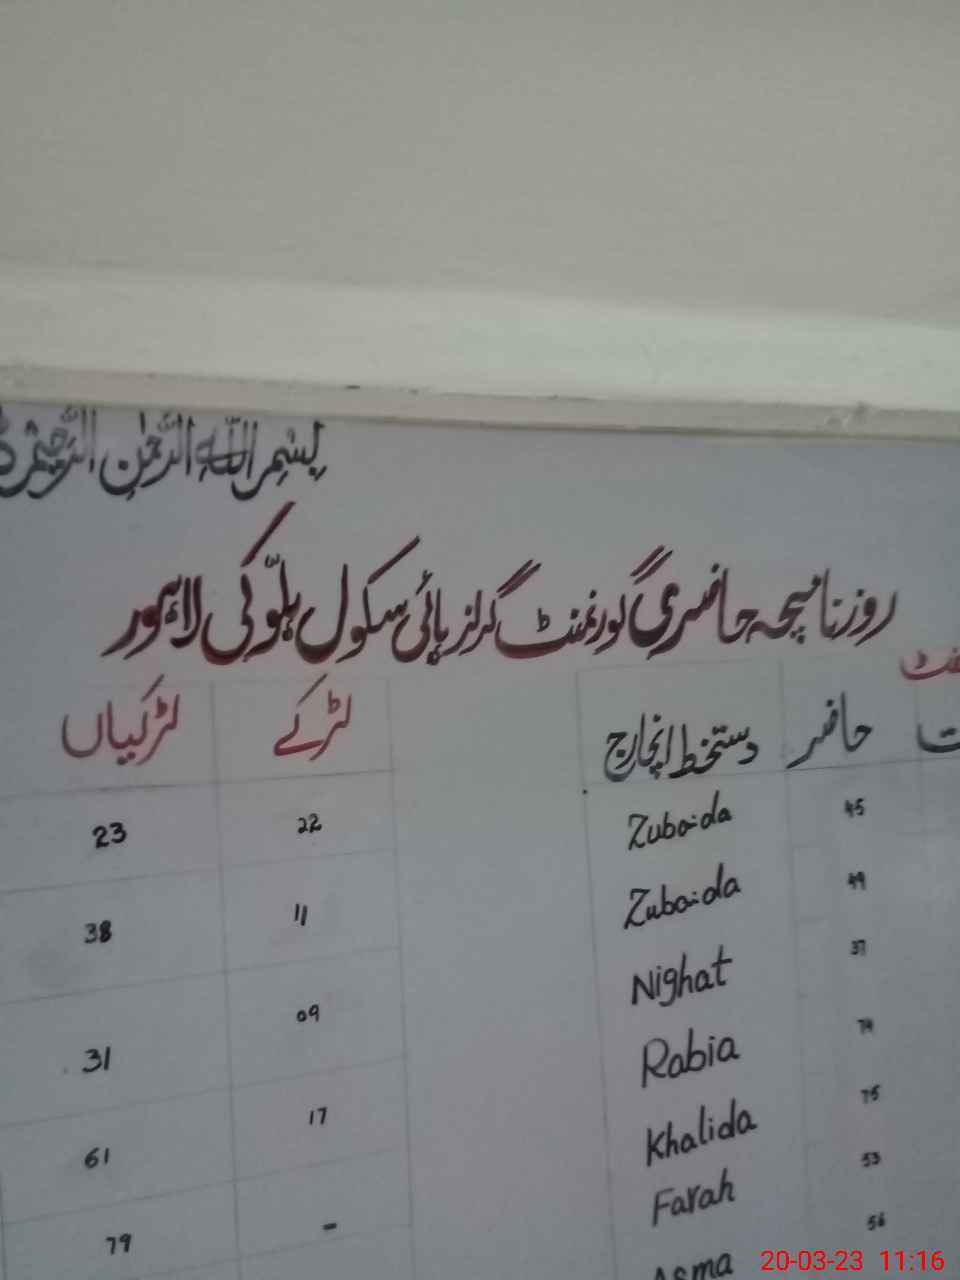 بِسْمِ اللّٰهِ الرَّحْمٰنِ الرَّحِيْمِ
روزنامچہ حاضری گورنمنٹ گرلز ہائی سکول ہلّوکی لاہور
حاضر دستخط انچارج لڑکے لڑکیاں
45 Zubaida 22 23
49 Zubaida 11 38
37 Nighat 09 31
74 Rabia 17 61
75 Khalida - 79
53 Farah
56 Asma
20-03-23 11:16